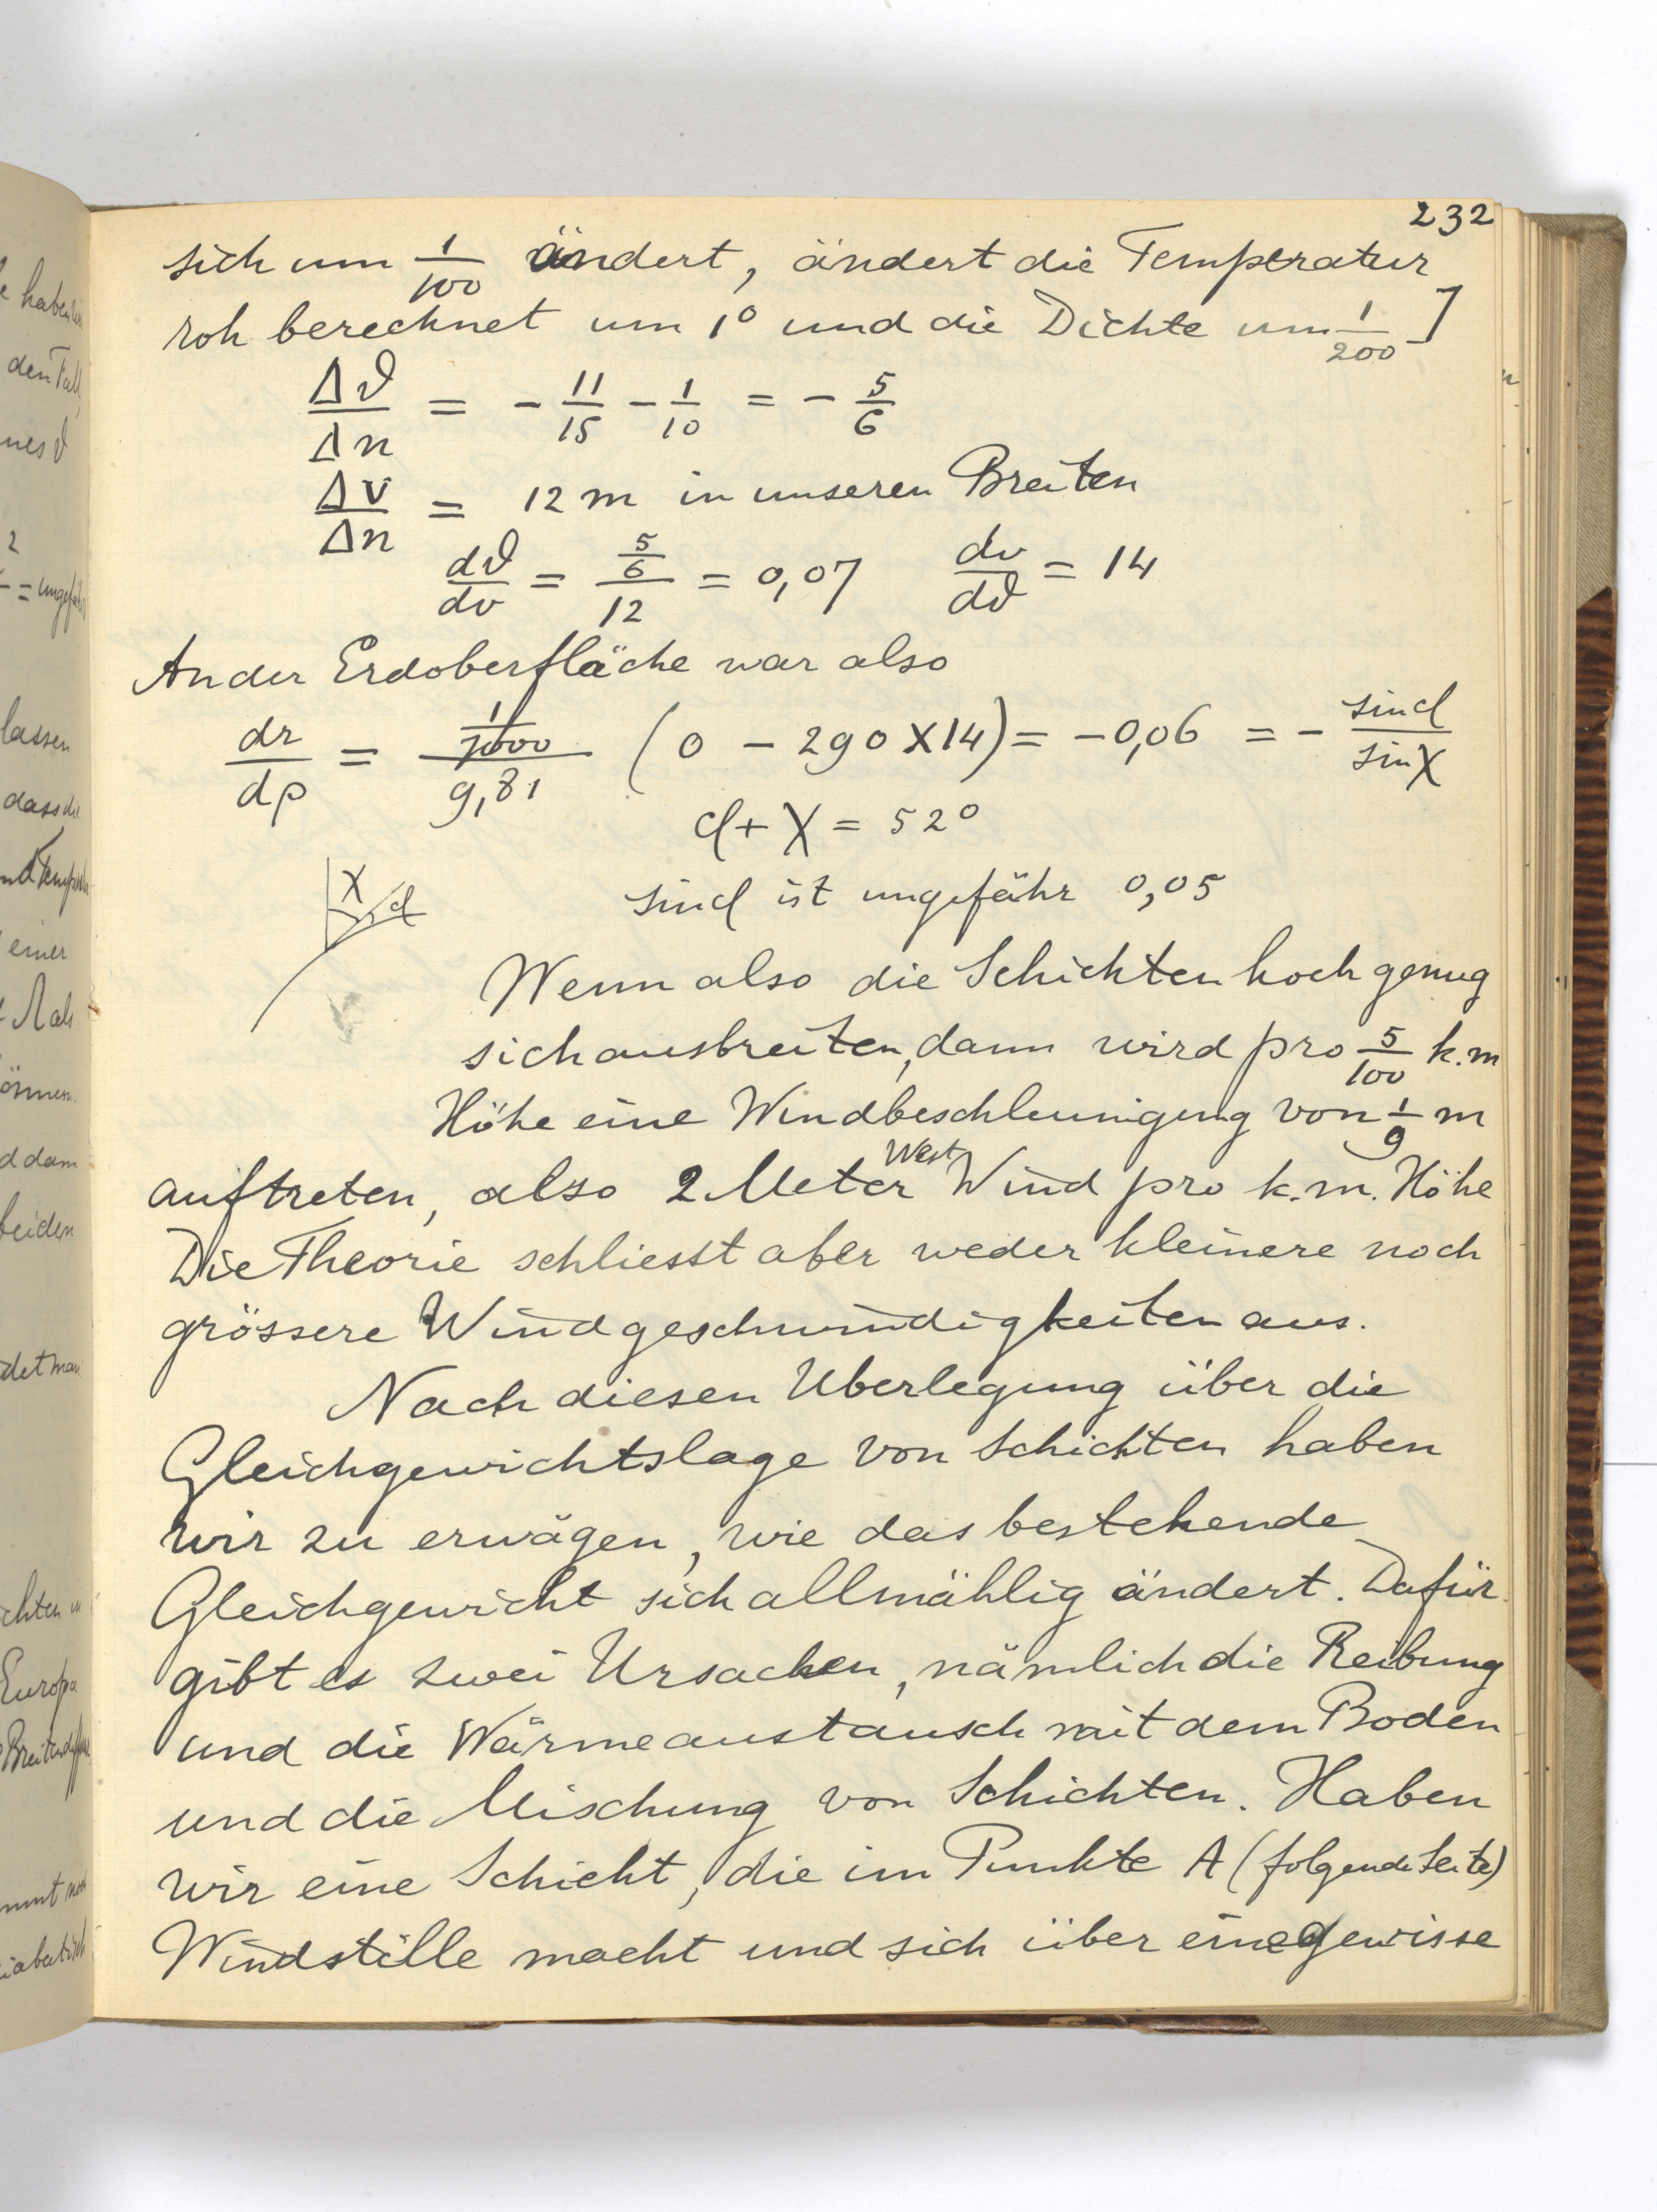 232
sich um 1/100 ändert, ändert die Temperatur
roh berechnet um 1° und die Dichte um 1/200 ]
Δϑ/Δn = - 11/15 - 1/10 = - 5/6
Δv/Δn = 12 m in unseren Breiten
dϑ/dv = 5/6/12 = 0,07 dv/dϑ = 14
An der Erdoberfläche war also
dr/dρ = 1/7000/9,81 (0 - 290 × 14) = -0,06 = - sin d/sin χ
d + χ = 52°
χ d
sin d ist ungefähr 0,05
Wenn also die Schichten hoch genug
sich ausbreiten, dann wird pro 5/100 k.m
Höhe eine Windbeschleunigung von 1/9 m
auftreten, also 2 Meter West Wind pro k.m. Höhe
Die Theorie schliesst aber weder kleinere noch
grössere Windgeschwindigkeiten aus.
Nach diesen Uberlegung über die
Gleichgewichtslage von Schichten haben
wir zu erwägen, wie das bestehende
Gleichgewicht sich allmählig ändert. Dafür
gibt es zwei Ursachen, nämlich die Reibung
und die Wärmeaustausch mit dem Boden
und die Mischung von Schichten. Haben
wir eine Schicht, die im Punkte A (folgende Seite)
Windstille macht und sich über eine gewisse